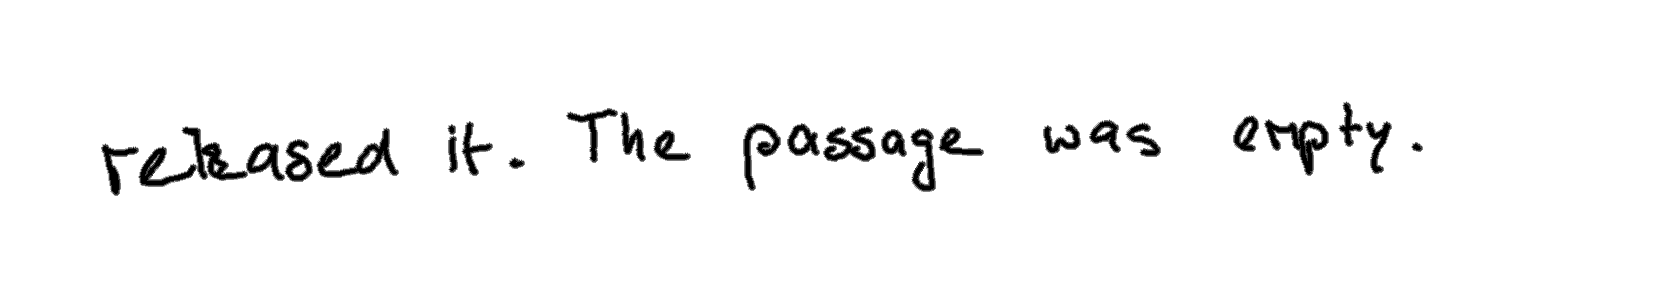 released it. The passage was empty.